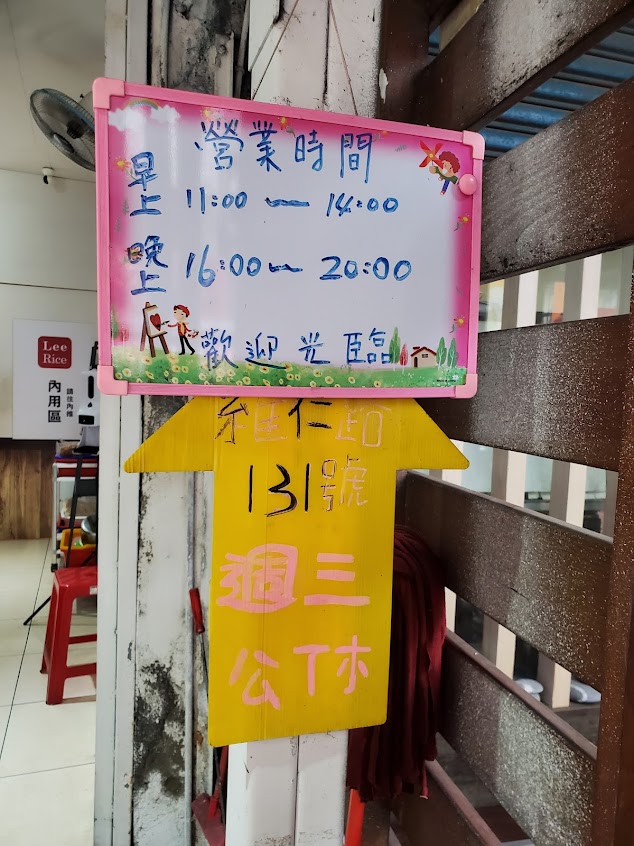 營業時間
早上 11:00 — 14:00
晚上 16:00 — 20:00
歡迎光臨
維仁路
131號
週三
公休
Lee
Rice
內用區
請往內推